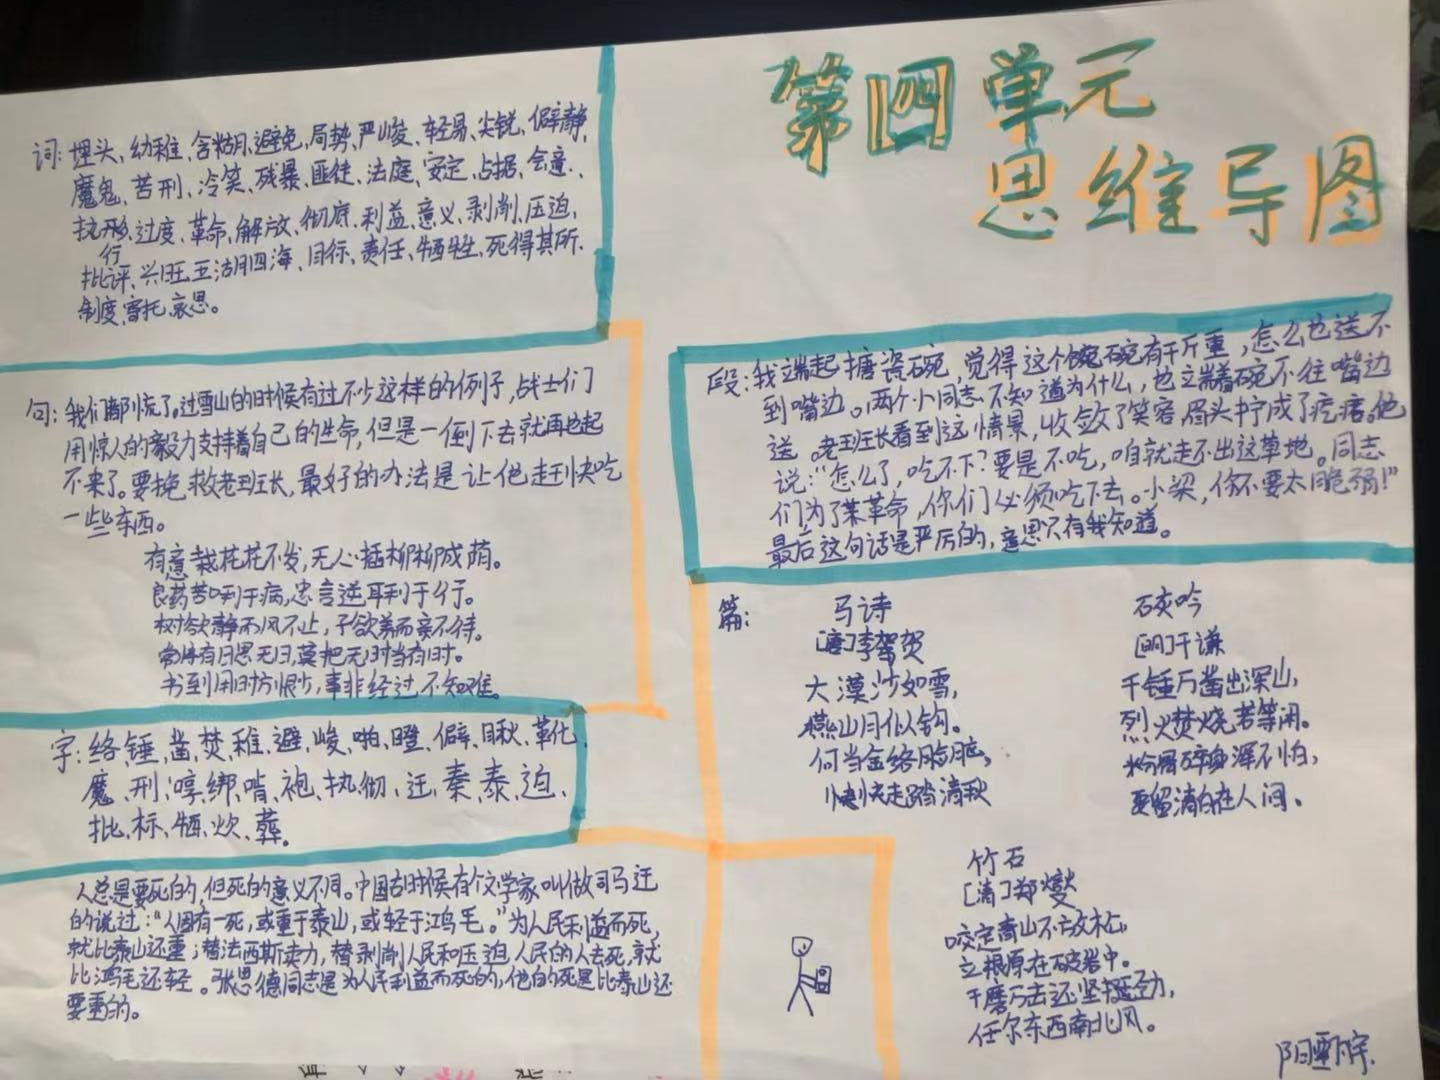 第四单元
思维导图
词:埋头、幼稚、含糊、避免、局势、严峻、轻易、尖锐、僻静、
魔鬼、苦刑、冷笑、残暴、匪徒、法庭、安定、占据、会意、
执行、过度、革命、解放、彻底、利益、意义、剥削、压迫、
批评、兴旺、五湖四海、目标、责任、牺牲、死得其所、
制度、寄托、哀思。
句:我们都慌了。过雪山的时候有过不少这样的例子,战士们
用惊人的毅力支持着自己的生命,但是一倒下去就再也起
不来了。要挽救老班长,最好的办法是让他赶快吃
一些东西。
有意栽花花不发,无心插柳柳成荫。
良药苦口利于病,忠言逆耳利于行。
树欲静而风不止,子欲养而亲不待。
常将有日思无日,莫把无时当有时。
书到用时方恨少,事非经过不知难。
字:络、锤、凿、焚、稚、避、峻、啪、瞪、僻、瞅、靴
魔、刑、哼、绑、啃、袍、执、彻、迁、秦、泰、迫、
批、标、牺、炊、葬。
人总是要死的,但死的意义不同。中国古时候有个文学家叫做司马迁
的说过:“人固有一死,或重于泰山,或轻于鸿毛。”为人民利益而死,
就比泰山还重;替法西斯卖力,替剥削人民和压迫人民的人去死,就
比鸿毛还轻。张思德同志是为人民利益而死的,他的死是比泰山还
要重的。
段:我端起搪瓷碗,觉得这个碗有千斤重,怎么也送不
到嘴边。两个小同志不知道为什么,也端着碗不往嘴边
送。老班长看到这情景,收敛了笑容,眉头拧成了疙瘩。他
说:“怎么了,吃不下?要是不吃,咱就走不出这草地。同志
们为了革命,你们必须吃下去。小梁,你不要太脆弱!”
最后这句话是严厉的,意思只有我知道。
篇:
马诗
[唐]李贺
大漠沙如雪,
燕山月似钩。
何当金络脑,
快走踏清秋
石灰吟
[明]于谦
千锤万凿出深山,
烈火焚烧若等闲。
粉骨碎身浑不怕,
要留清白在人间。
竹石
[清]郑燮
咬定青山不放松,
立根原在破岩中。
千磨万击还坚劲,
任尔东西南北风。